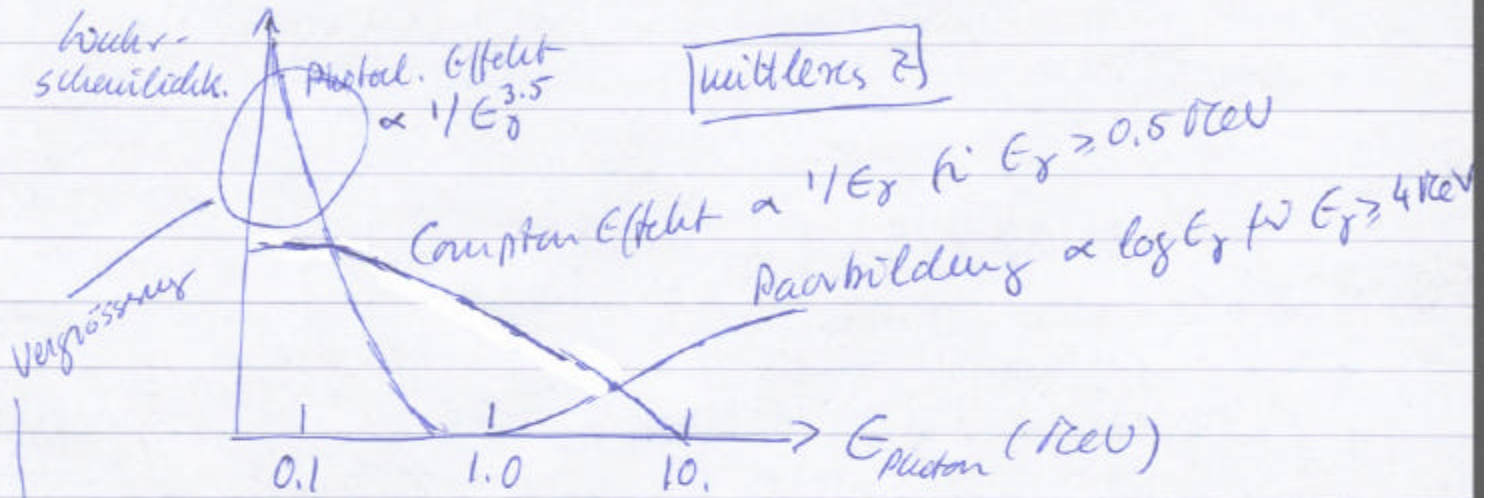 Wahr-
scheinlichk.
Photoel. Effekt
∝ 1/Eγ^3.5
mittleres Z
Compton Effekt ∝ 1/Eγ für Eγ ≥ 0.5 MeV
Paarbildung ∝ log Eγ für Eγ ≥ 4 MeV
Vergrösserung
0.1 1.0 10.
E Photon (MeV)